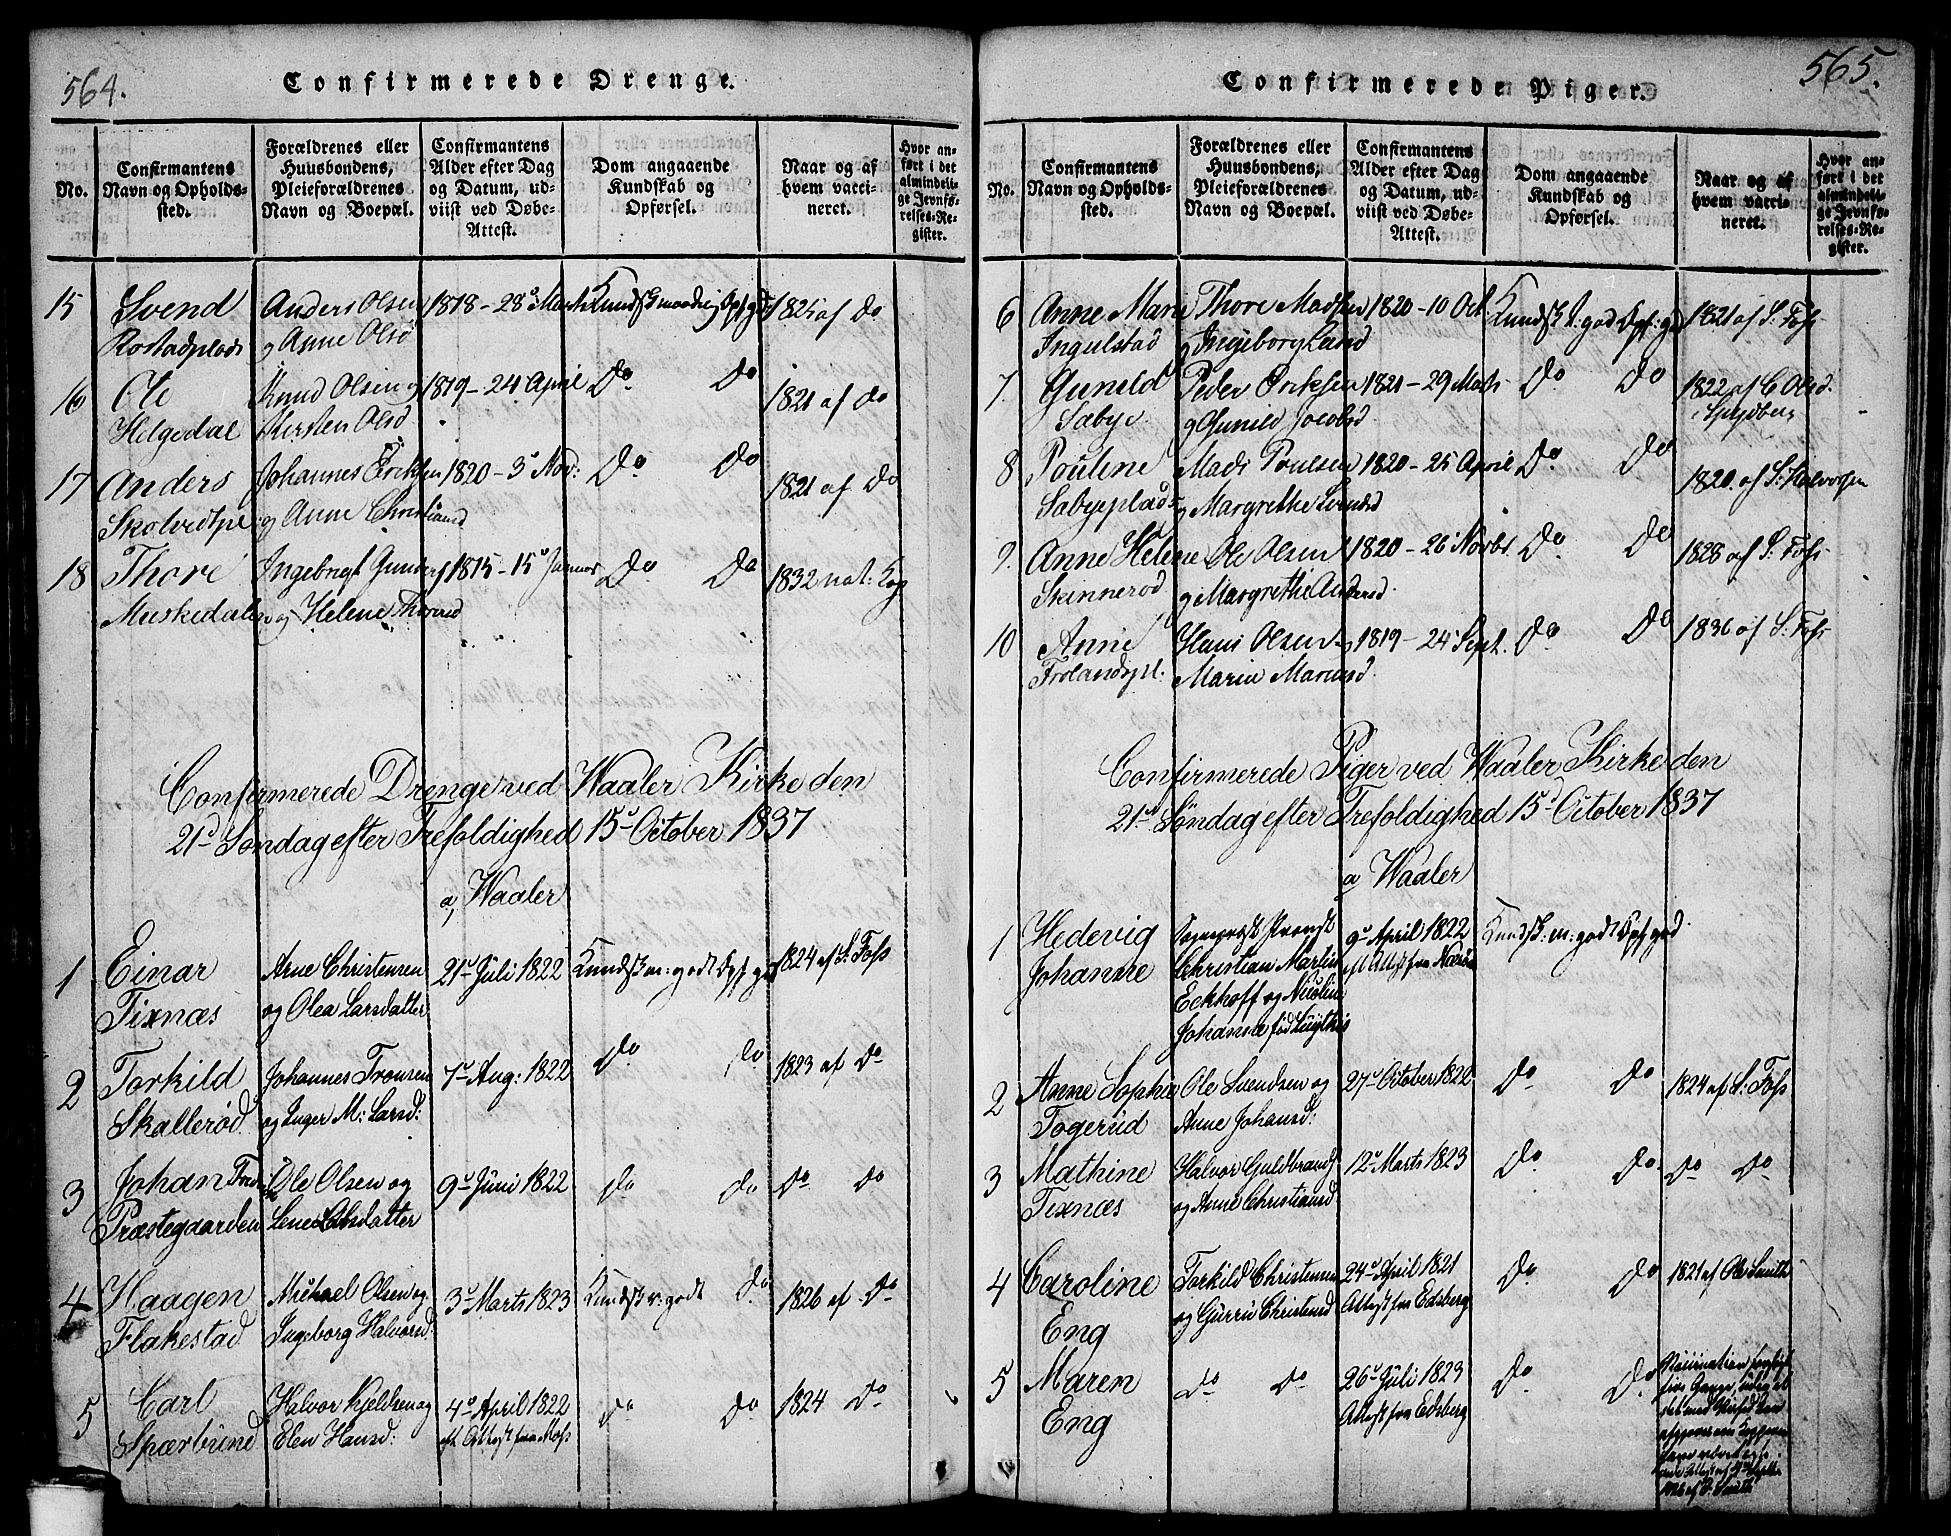 564.
Confirmerede Drenge.
No.
Confirmantens Navn og Opholds-sted.
Forældrenes eller Huusbondens, Pleieforældrenes Navn og Boepæl.
Confirmantens Alder efter Dag og Datum, ud-viist ved Døbe-Attest.
Dom angaaende Kundskab og Opførsel.
Naar og af hvem vacci-neret.
Hvor an-ført i det almindeli-ge Jevnfø-relses-Re-gister.
15 Svend Anders Olsen 1818 - 28 Marts Kundsk maadelig Opf god 1821 af Do
Rostadplads og Anne Olsd
16 Ole Knud Olsen og 1819 - 24 April Do Do 1821 af Do
Helgedal Kirsten Olsd
17 Anders Johannes Eriksen 1820 - 3 Nov: Do Do 1821 af Do
og Anne Christiansd
18 Thore Ingebrigt 1815 - 15 Januar Do Do 1832 nat: Kop
og Helene Thoresd
Confirmerede Drenge ved Waaler Kirke den
21de Søndag efter Trefoldighed 15de October 1837
a, Waaler
1 Einar Arne Christensen 21de Juli 1822 Kundsk m: godt Opf god 1824 af S. Foss
Tixnæs og Olea Larsdatter
2 Torkild Johannes Tronsen 7de Aug: 1822 Do Do 1823 af Do
Skallerød og Inger M: Larsd:
3 Johan Ole Olsen og 9de Juni 1822 Do Do Do Do
Præstegaarden Lene
4 Haagen Michael Olsen og 3de Marts 1823 Kundsk v: godt Do 1826 af Do
Flakestad Ingeborg Halvorsd.
5 Carl Halvor Kjeldsen og 4de April 1822 Do Do 1824 Do
Spærbund Elen Hansd: eft Attest fra Moss
565.
Confirmerede Piger.
No.
Confirmantens Navn og Opholds-sted.
Forældrenes eller Huusbondens, Pleieforældrenes Navn og Boepæl.
Confirmantens Alder efter Dag og Datum, ud-viist ved Døbe-Attest.
Dom angaaende Kundskab og Opførsel.
Naar og af hvem vacci-neret.
Hvor an-ført i det almindeli-ge Jevnfø-relses-Re-gister.
6 Anne Marie Thore Madsen 1820 - 10 Oct Kundsk: god Opf: god 1821 af S: Foss
Ingulstad og Ingeborg
7. Gunild Peder Eriksen 1821 - 29 Marts Do Do 1822 af C Olsd.
Sabye og Gunild Jacobsd. Spydberg
8 Poulene Mads Poulsen 1820 - 25 April Do Do 1820. af S: Halvorsen
Sabyeplads og Margrethe Svendsd
9. Anne Helene Ole Olsen 1820 - 26 Novbr Do Do 1828 af S: Foss
Skinnerød og Margrethe Andersd.
10 Anne Hans Olsen 1819 - 24 Sept. Do Do 1836 af S: Foss
Frolandspl. Marie
Confirmerede Piger ved Waaler Kirke den
21de Søndag efter Trefoldighed 15de October 1837
a Waaler
1 Hedevig Sognepræst Provst 9de April 1822 Kundsk: m: godt Opf god
Johanne Christian Martin eft Attest fra
Eckhoff og Nicoline
Johanne fød
2 Anne Sophie Ole Svendsen og 27de October 1822 Do Do 1824 af S: Foss
Togerud Anne Johansd:
3 Mathine Halvor Guldbrands 12de Marts 1823 Do Do Do Do
Tixnæs og Anne Christiansd
4 Caroline Torkild Christensen 24de April 1821 Do Do 1821 af Ole Smith
Eng og Gurrie Christensd Attest fra Edsberg
5 Maren Do Do 26de Juli 1823 Do Do
Eng Attest fra Edsberg